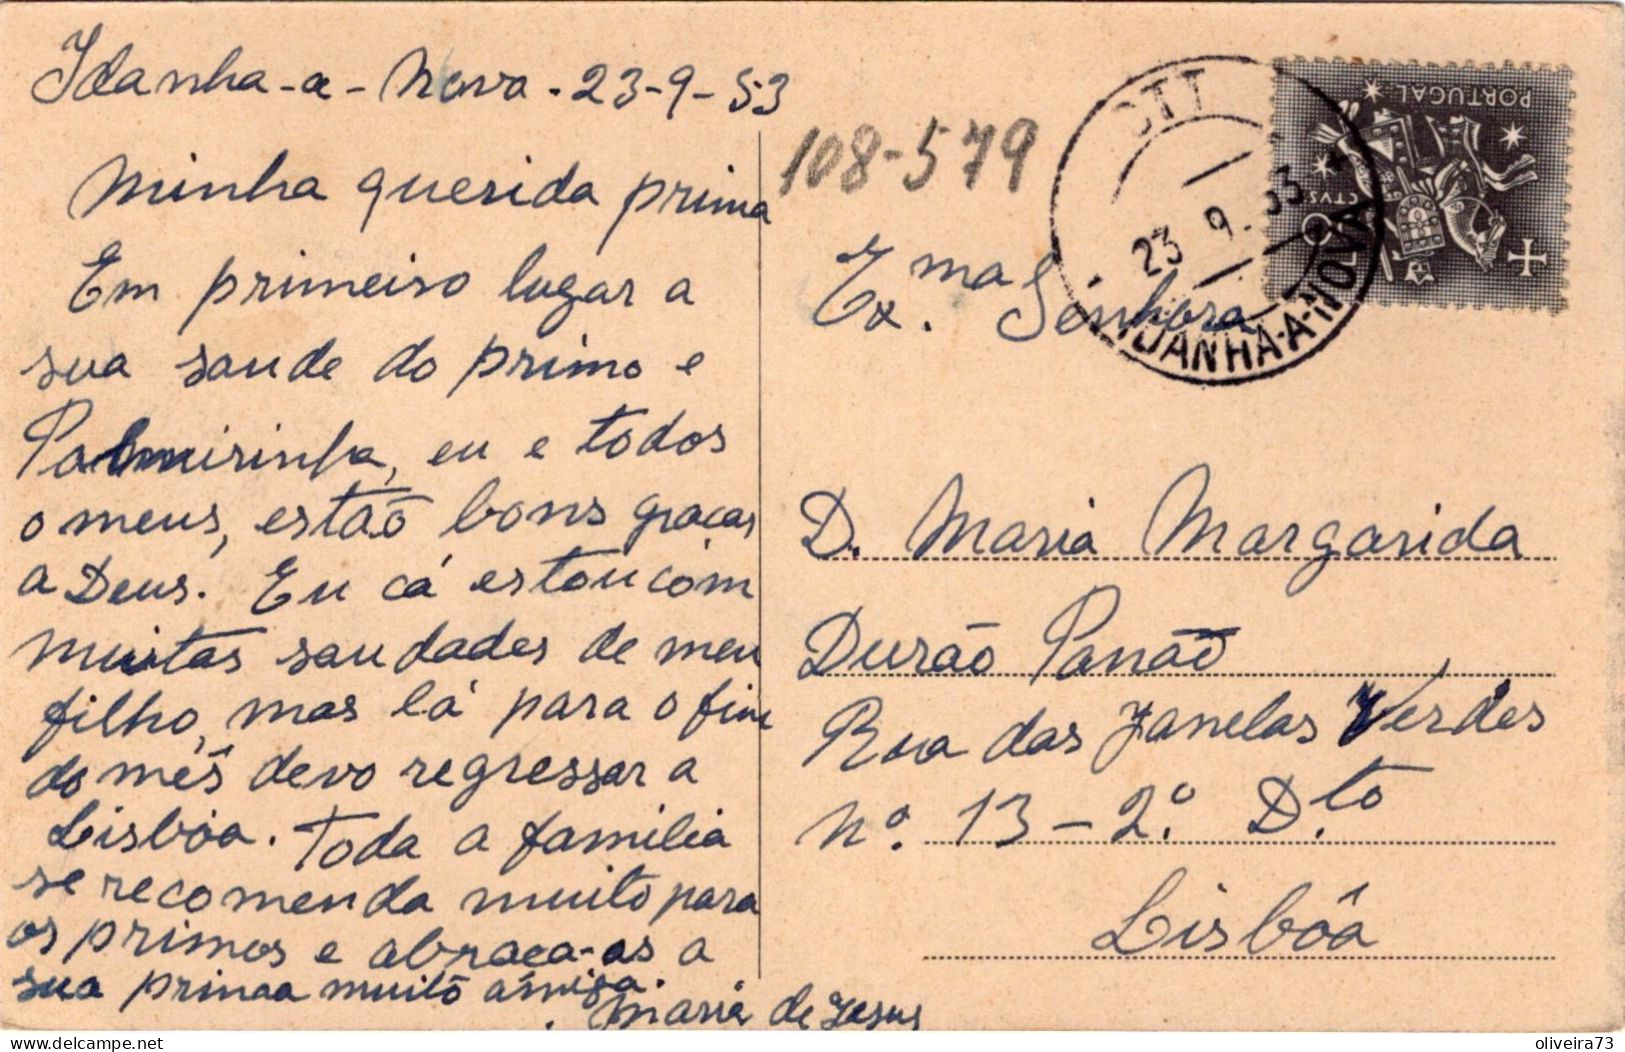 Idanha-a-Nova-23-9-53
Minha querida prima
Em primeiro lugar a
sua saude do primo e
Palmirinha, eu e todos
o meus, estão bons graças
a Deus. Eu cá estou com
muitas saudades de meu
filho, mas lá para o fim
do mês devo regressar a
Lisbôa. Toda a familia
se recomenda muito para
os primos e abraça-os a
sua prima muitô amiga.
Maria de Jesus
108-579
CTT
23 9. 53
IDANHA-A-NOVA
PORTUGAL
CTVS
Ex.ma Senhora
D. Maria Margarida
Durão Panão
Rua das Janelas Verdes
Nº. 13-2.º D.to
Lisbôa
oliveira73
delcampe.net